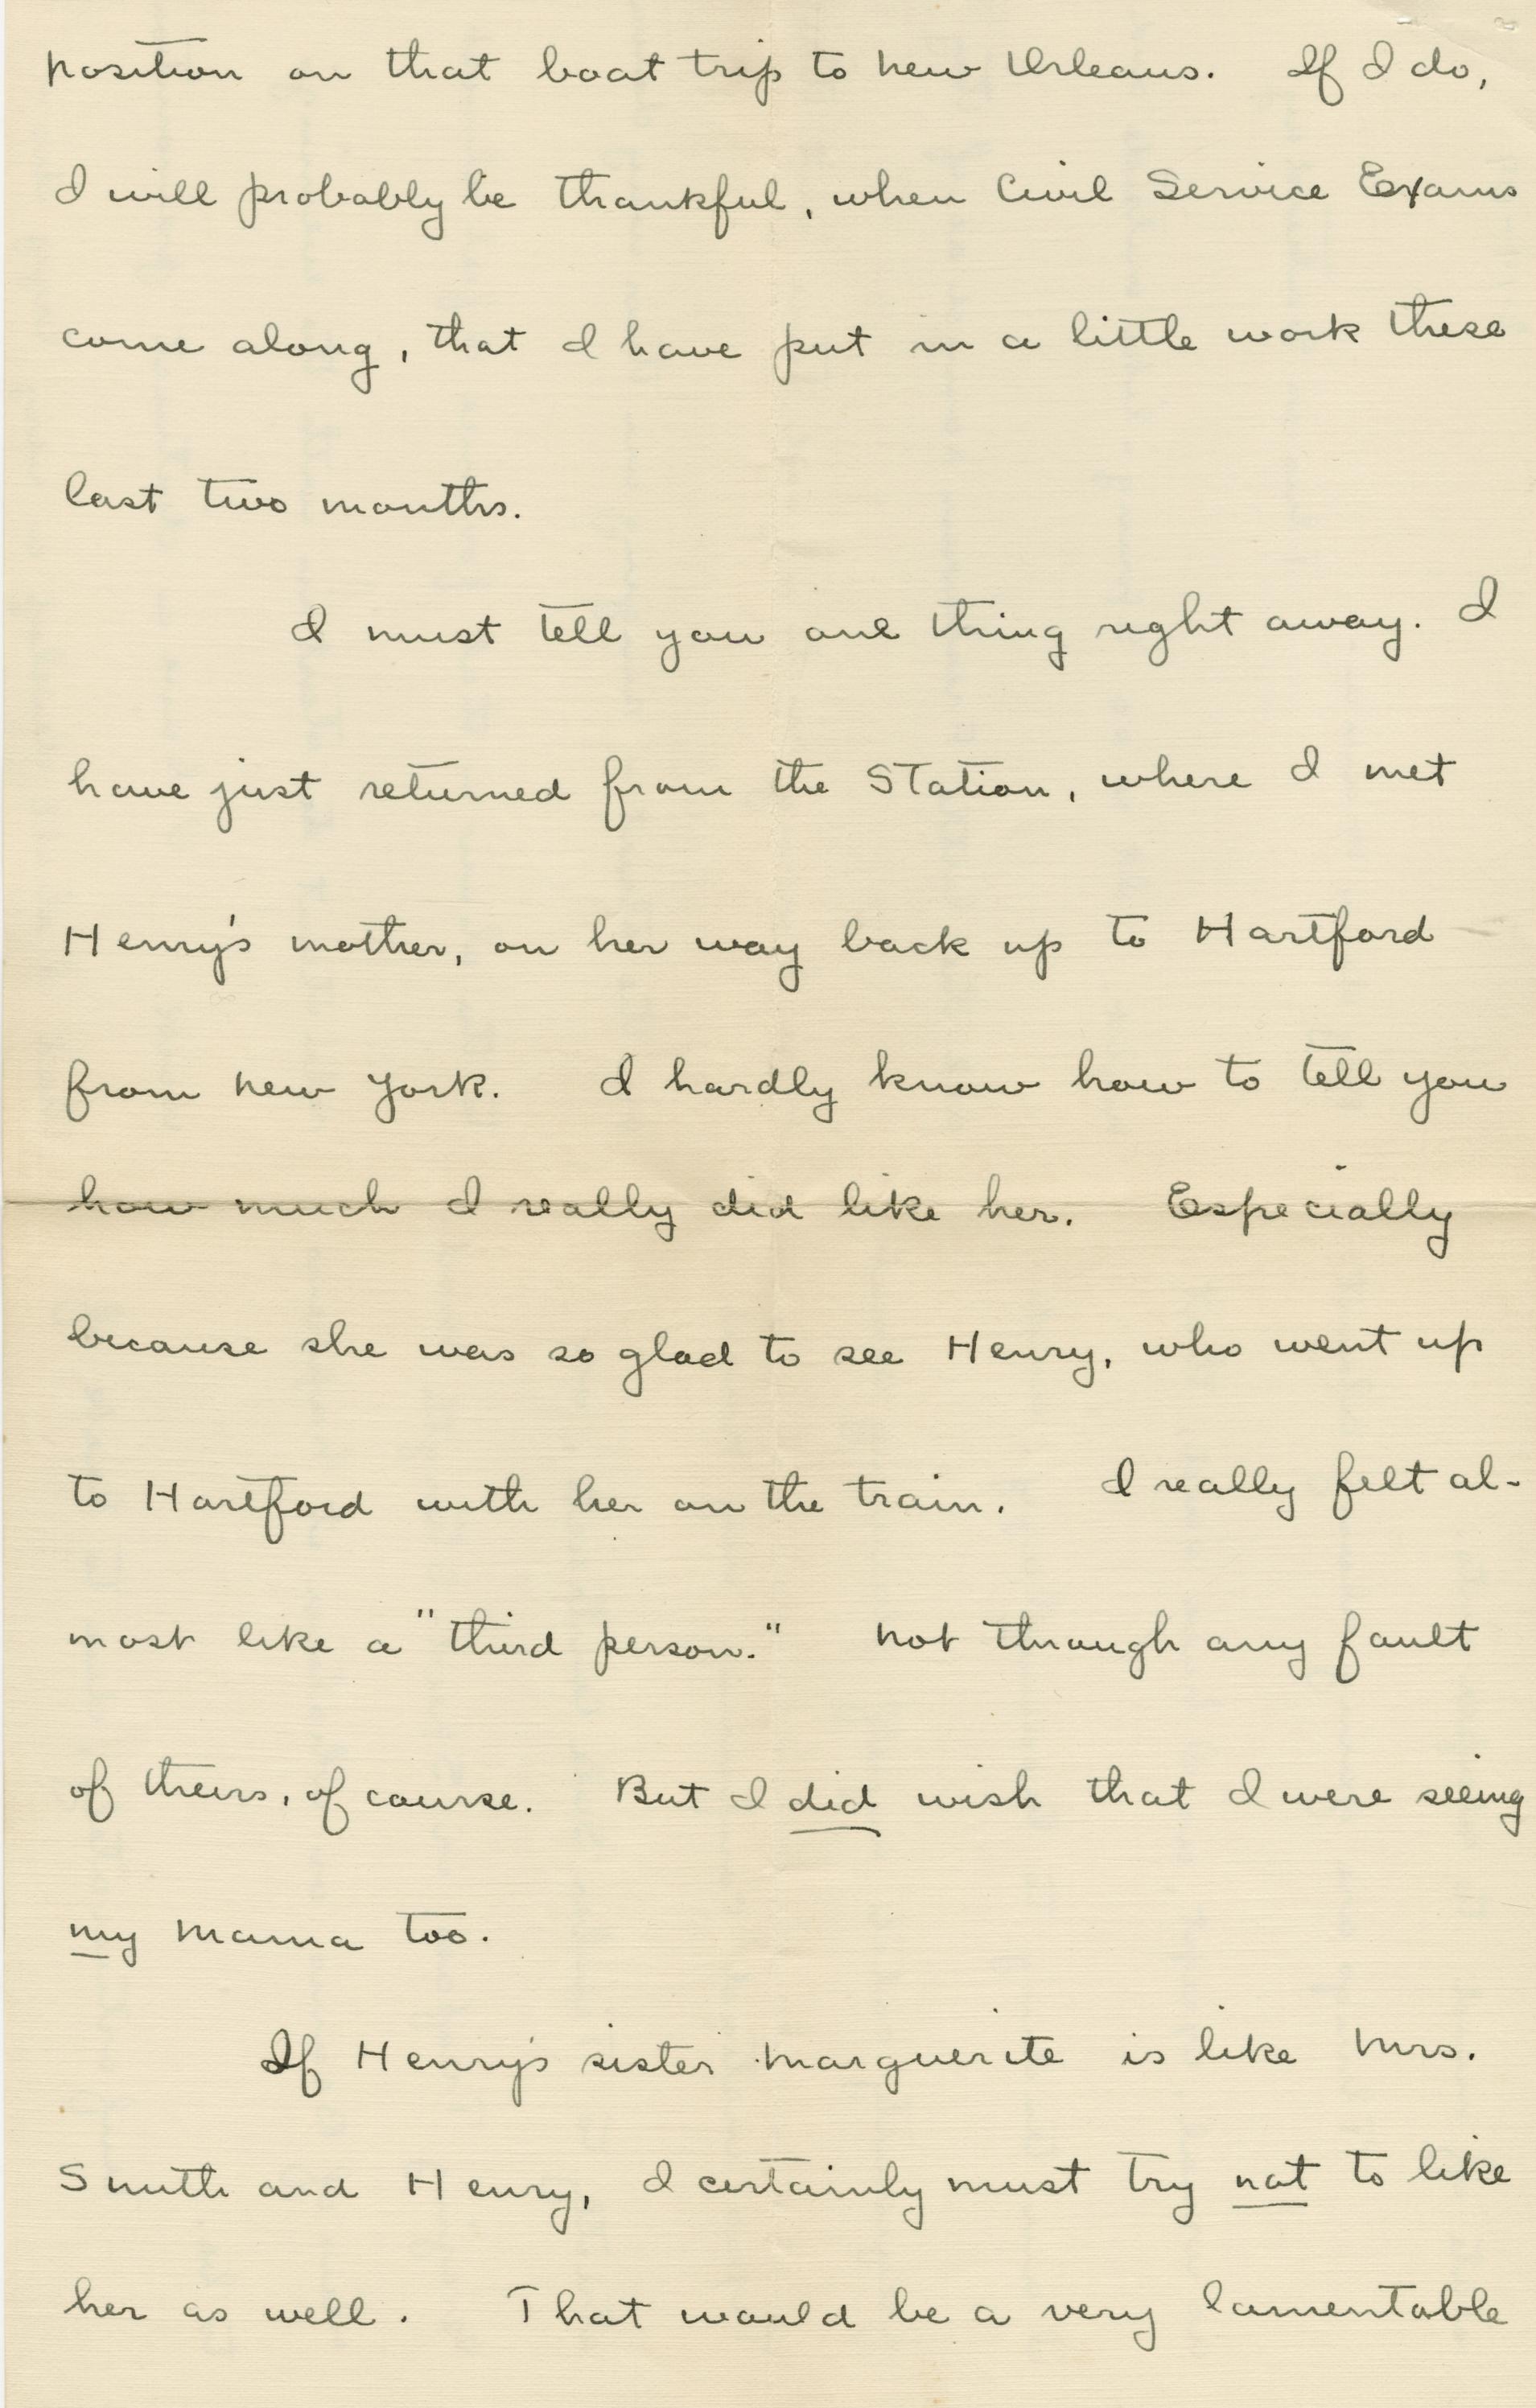 position on that boat trip to New Orleans. If I do,
I will probably be thankful, when Civil Service Exams
come along, that I have put in a little work these
last two months.
I must tell you one thing right away. I
have just returned from the Station, where I met
Henry's mother, on her way back up to Hartford
from New York. I hardly know how to tell you
how much I really did like her. Especially
because she was so glad to see Henry, who went up
to Hartford with her on the train. I really felt al-
most like a "third person." Not through any fault
of theirs, of course. But I did wish that I were seeing
my Mama too.
If Henry's sister Marguerite is like Mrs.
Smith and Henry, I certainly must try not to like
her as well. That would be a very lamentable